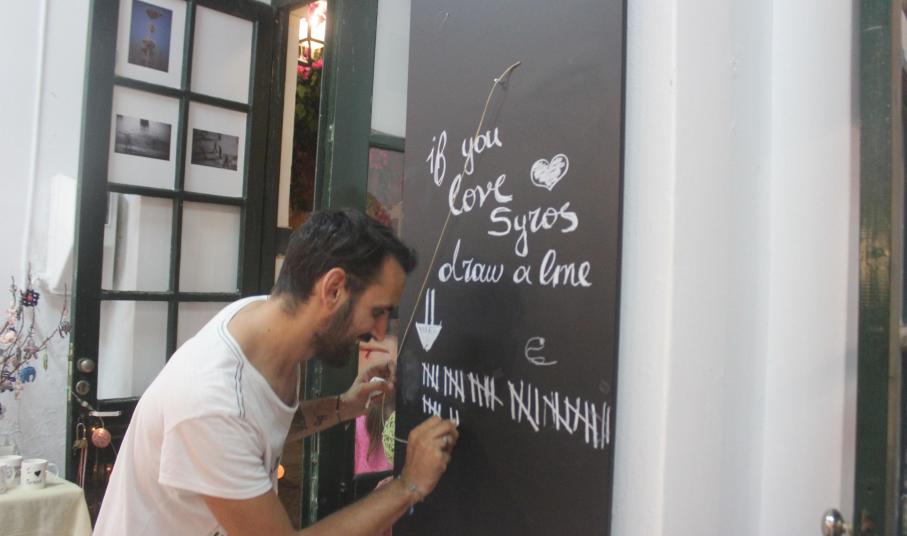 if you
love
Syros
draw a line